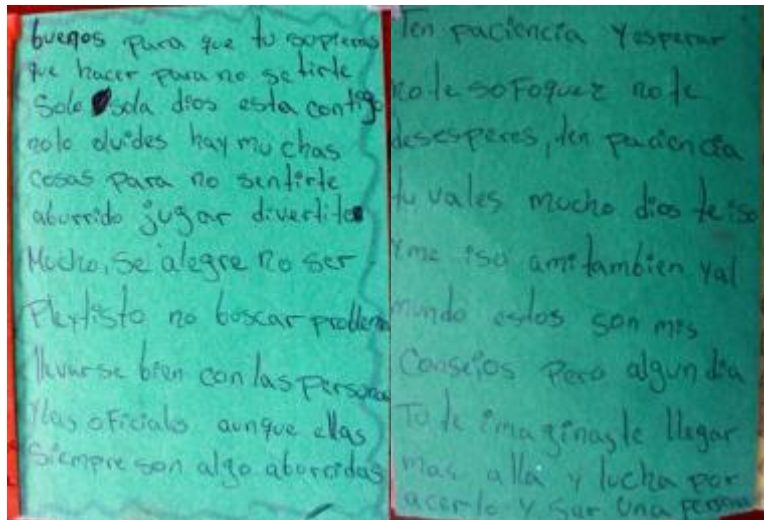 buenos para que tu supieras
que hacer para no setirte
Solo sola dios esta contigo
nolo olvides hay mu chas
cosas para no sentirte
aburrido jugar divertite
Mucho, se alegre no ser
no buscar problema
llevarse bien con las persona
Ylas oficiales aunque ellas
Siempre son algo aborridas
Ten paciencia Yesperar
note sofoquez note
desesperes, ten paciencia
tu vales mucho dios te iso
Yme iso ami tambien yal
mundo estos son mis
Consejos Pero algun dia
Tu, te imaginaste llegar
mas alla y lucha por
acerlo y ser una persona